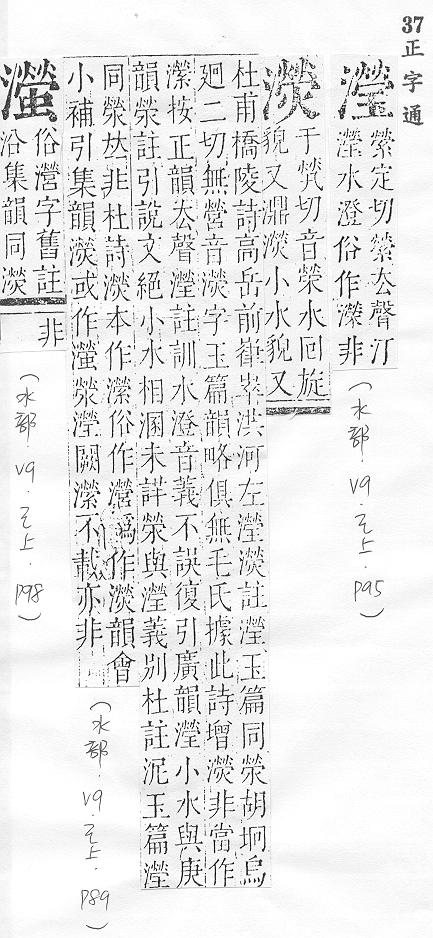 37正字通
瀅
縈定切縈去聲汀
瀅水澄俗作濚非
(水部．V9．巳上．P95)
濴
于㷀切音榮水囘旋
貌又濎濴小水貌又
杜甫橋陵詩高岳前嵂崒洪河左瀅濴註瀅玉篇同滎胡坰烏
迥二切無營音濴字玉篇韻略俱無毛氏據此詩增濴非當作
濚按正韻去聲瀅註訓水澄音義不誤復引廣韻瀅小水與庚
韻滎註引說文絕小水相溷未詳滎與瀅義別杜註泥玉篇瀅
同滎𠀤非杜詩濴本作濚俗作瀯譌作濴韻會
小補引集韻濴或作㶈滎瀅闕濚不載亦非
(水部．V9．巳上．P89)
㶈
俗瀯字舊註
沿集韻同濴
非
(水部．V9．巳上．P98)